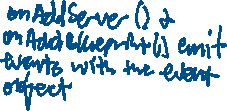 onAddServer () &
onAddBlueprint() emit
events with the event
object